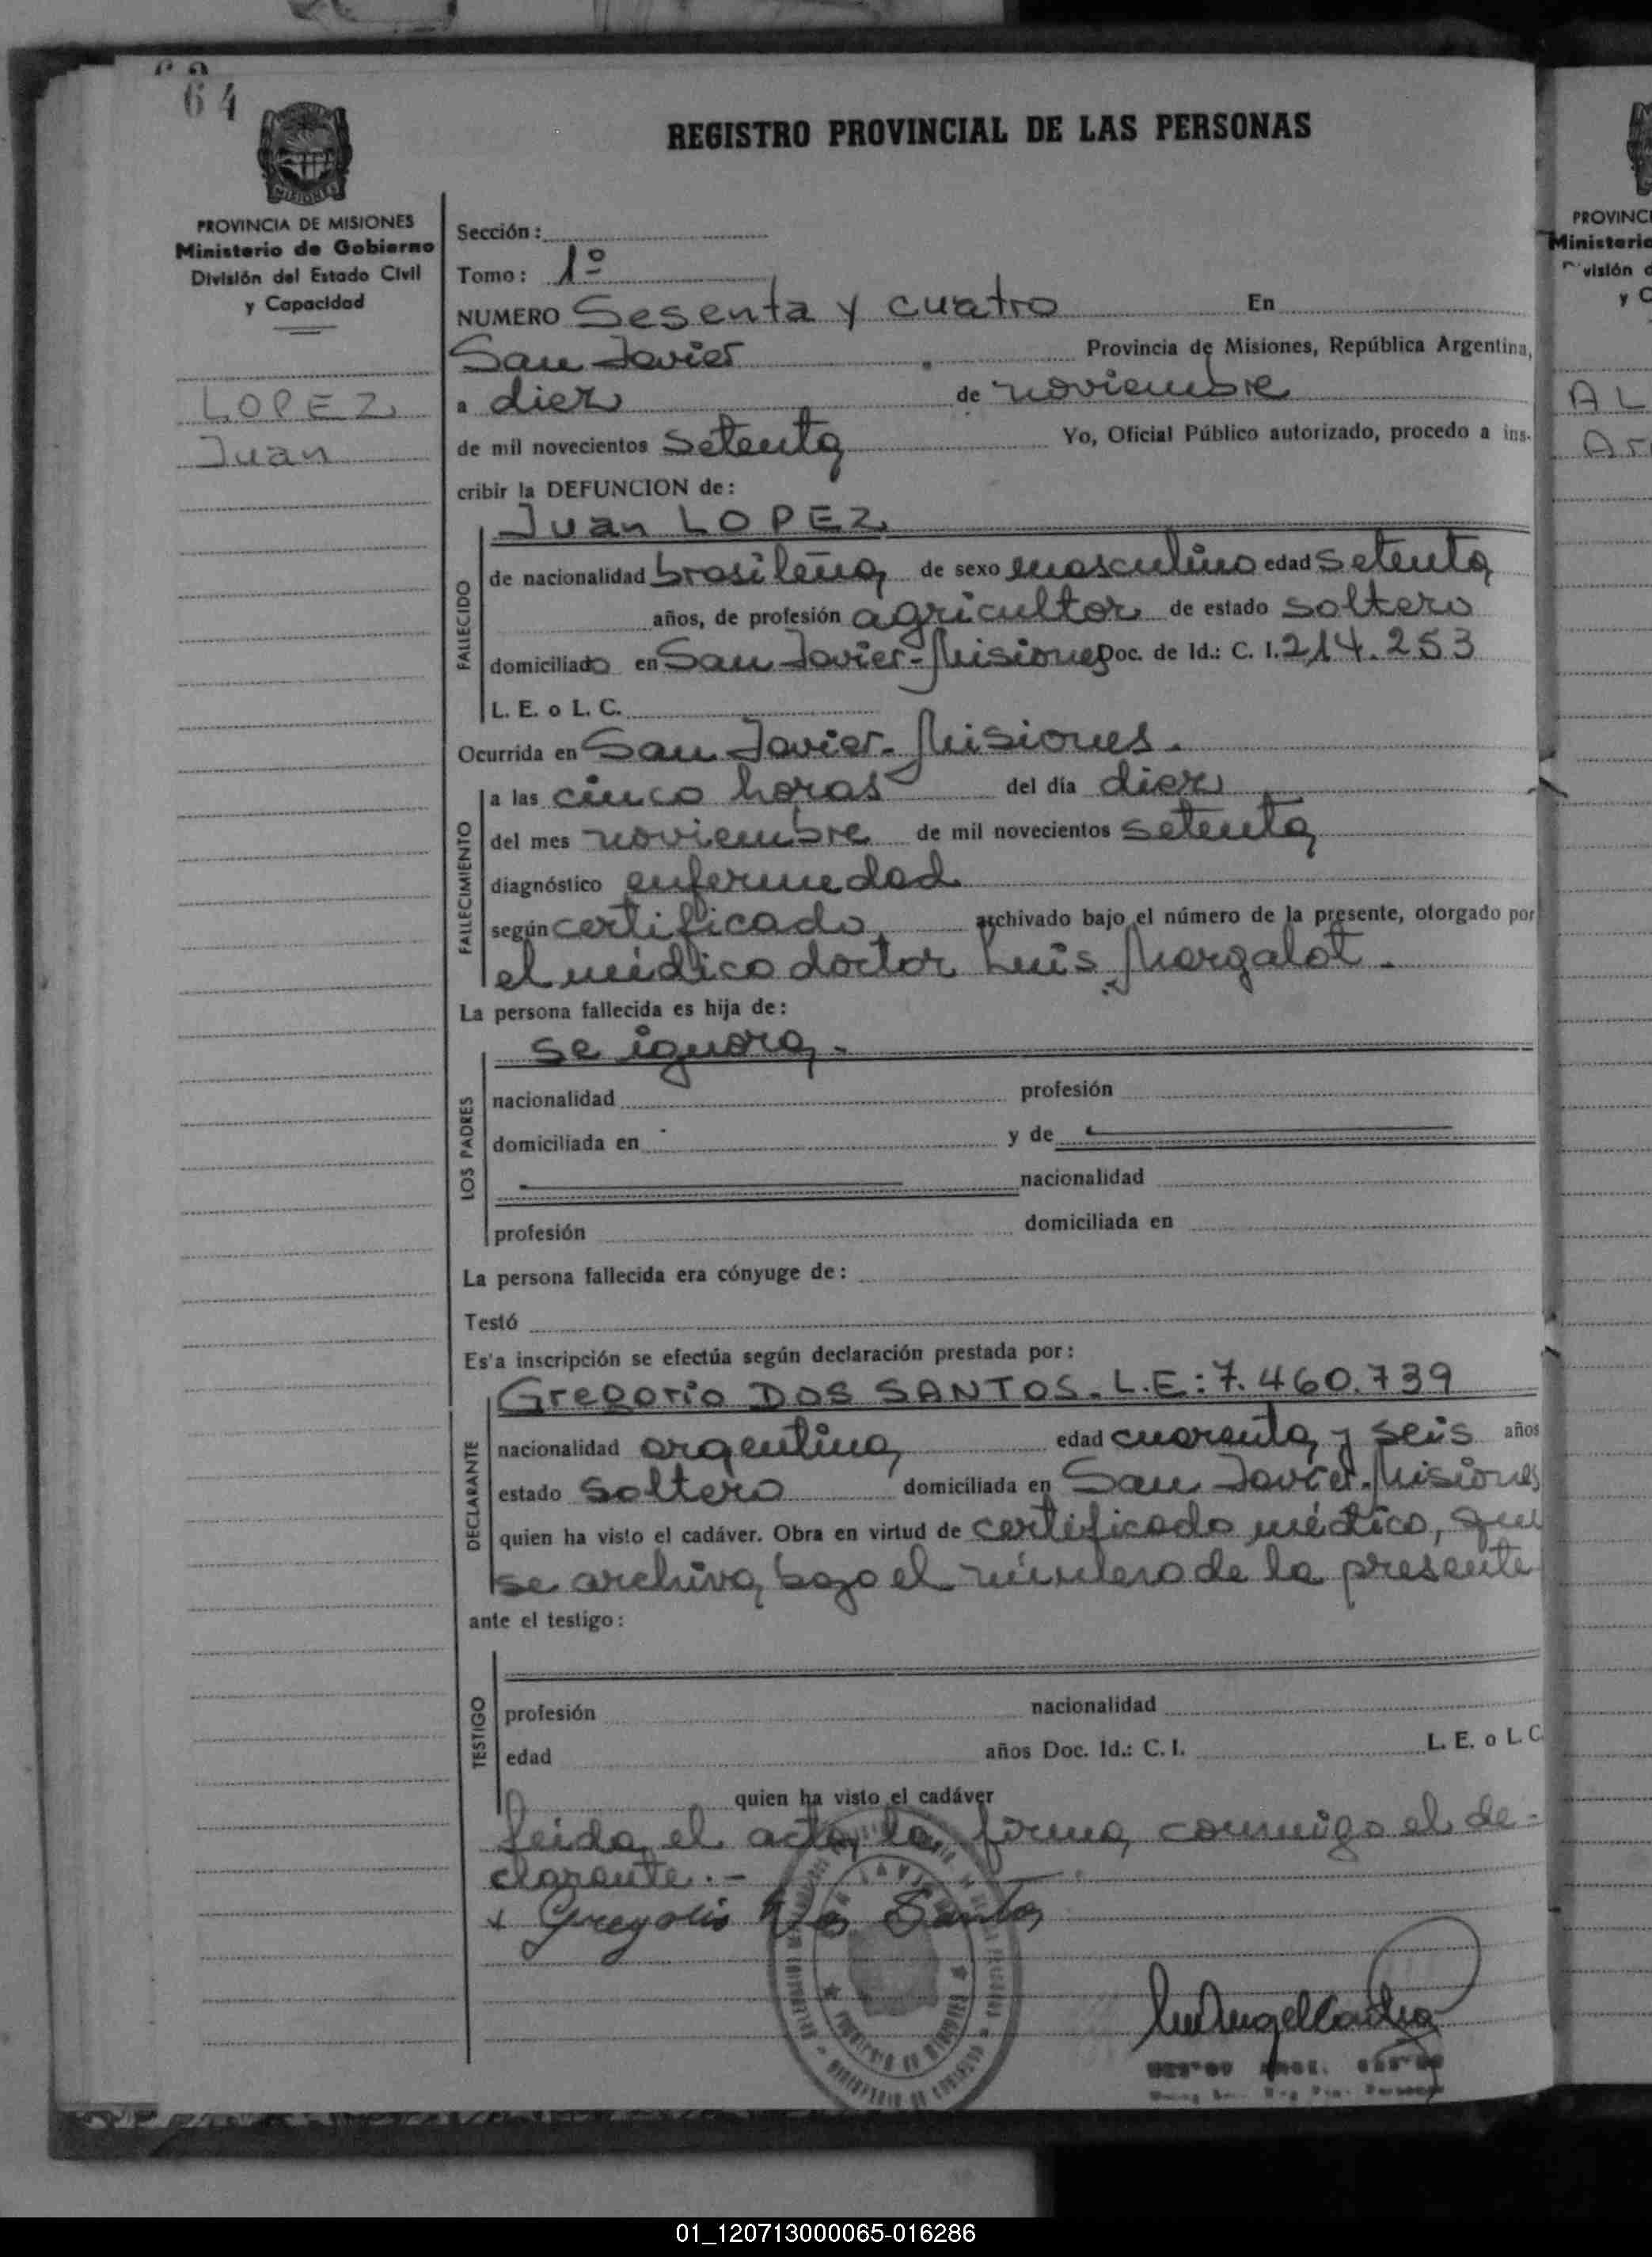 64
REGISTRO PROVINCIAL DE LAS PERSONAS
MISIONES
PROVINCIA DE MISIONES
Ministerio de Gobierno
División del Estado Civil
y Capacidad
LOPEZ
Juan
Sección:
Tomo: 1º
NUMERO Sesenta y cuatro En
San Javier Provincia de Misiones, República Argentina,
a diez de noviembre
de mil novecientos setenta Yo, Oficial Público autorizado, procedo a ins-
cribir la DEFUNCION de:
FALLECIDO
Juan LOPEZ
de nacionalidad brasileña de sexo masculino edad setenta
años, de profesión agricultor de estado soltero
domiciliado en San Javier-Misiones Doc. de Id.: C. I. 214.253
L. E. o L. C.
Ocurrida en San Javier-Misiones.
FALLECIMIENTO
a las cinco horas del día diez
del mes noviembre de mil novecientos setenta
diagnóstico enfermedad
según certificado archivado bajo el número de la presente, otorgado por
el médico doctor Luis Margalot.
La persona fallecida es hija de:
LOS PADRES
se ignora.
nacionalidad profesión
domiciliada en y de
nacionalidad
profesión domiciliada en
La persona fallecida era cónyuge de:
Testó
Es'a inscripción se efectúa según declaración prestada por:
DECLARANTE
Gregorio DOS SANTOS. L.E: 7.460.739
nacionalidad argentina edad cuarenta y seis años
estado soltero domiciliada en San Javier-Misiones
quien ha visto el cadáver. Obra en virtud de certificado médico, que
se archiva bajo el número de la presente
ante el testigo:
TESTIGO
profesión nacionalidad
edad años Doc. Id.: C. I. L. E. o L. C
quien ha visto el cadáver
Leida el acta, la firma conmigo el de-
clarante.-
x Gregorio Dos Santos
PROVINC
Ministerio
visión d
y C
AL
01_120713000065-016286